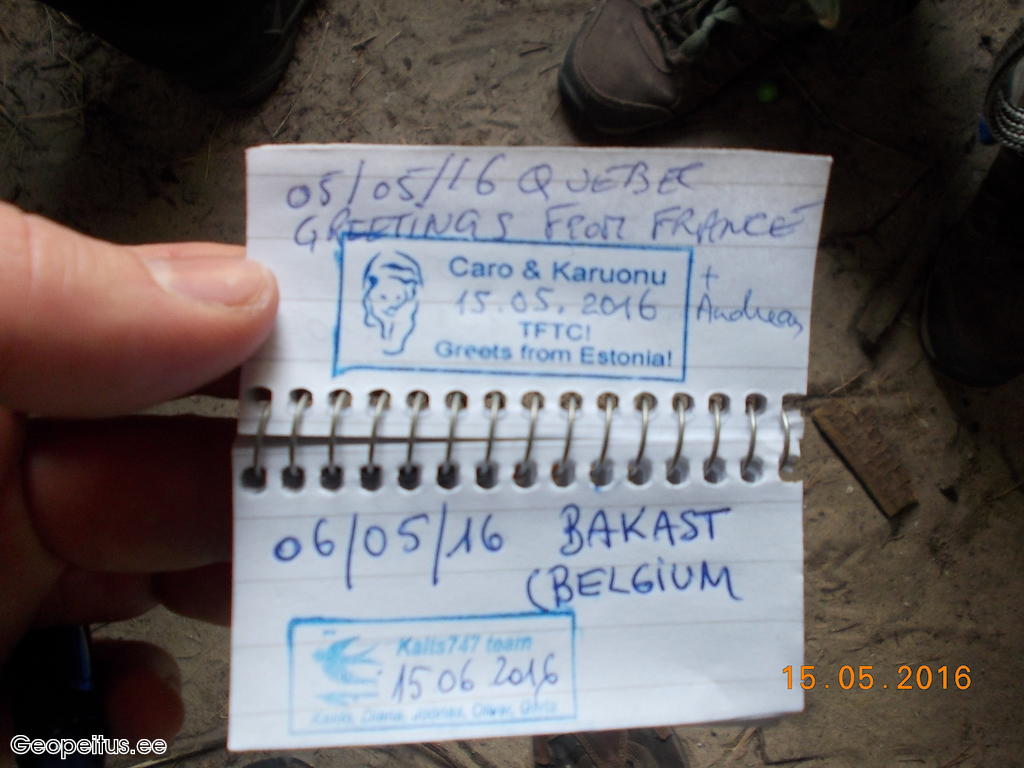 05/05/16 QUEBEC
GREETINGS FROM FRANCE
Caro & Karuonu
15.05.2016
TFTC!
Greets from Estonia!
+
Andreas
06/05/16 BAKAST
(BELGIUM
Kalls747 team
15 06 2016
Diana, Joonas, Oliver,
15.05.2016
Geopeitus.ee